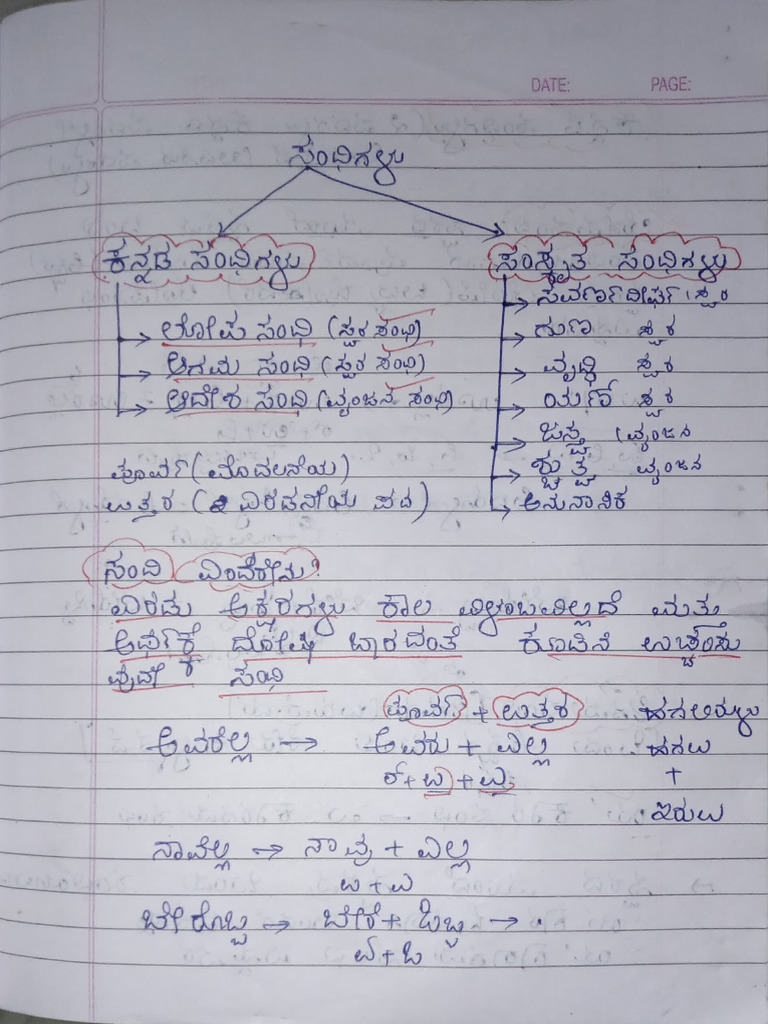 DATE: PAGE:
ಸಂಧಿಗಳು
ಕನ್ನಡ ಸಂಧಿಗಳು ಸಂಸ್ಕೃತ ಸಂಧಿಗಳು
ಸವರ್ಣದೀರ್ಘ ಸ್ವರ
ಲೋಪ ಸಂಧಿ (ಸ್ವರ ಸಂಧಿ) ಗುಣ ಸ್ವರ
ಆಗಮ ಸಂಧಿ (ಸ್ವರ ಸಂಧಿ) ವೃದ್ಧಿ ಸ್ವರ
ಆದೇಶ ಸಂಧಿ (ವ್ಯಂಜನ ಸಂಧಿ) ಯಣ್ ಸ್ವರ
ಜಸ್ತ್ವ (ವ್ಯಂಜನ
ಪೂರ್ವ (ಮೊದಲನೆಯ) ಶ್ಚುತ್ವ ವ್ಯಂಜನ
ಉತ್ತರ (2 ಎರಡನೇಯ ಪದ) ಅನುನಾಸಿಕ
ಸಂದಿ ಎಂದರೇನು?
ಎರಡು ಅಕ್ಷರಗಳು ಕಾಲ ವಿಳಂಬವಿಲ್ಲದೆ ಮತ್ತು
ಅರ್ಥಕ್ಕೆ ದೋಷ ಬಾರದಂತೆ ಕೂಡಿಸಿ ಉಚ್ಛರಿಸು
ವುದೇ ಸಂಧಿ
ಪೂರ್ವ + ಉತ್ತರ ಹಗಲಿರುಳು
ಅವರೆಲ್ಲ → ಅವರು + ಎಲ್ಲ ಹಗಲು
ರ್ + ಉ + ಎ +
ಇರುಳು
ನಾವೆಲ್ಲ → ನಾವು + ಎಲ್ಲ
ಉ + ಎ
ಬೇರೊಬ್ಬ → ಬೇರೆ + ಒಬ್ಬ →
ಎ + ಒ